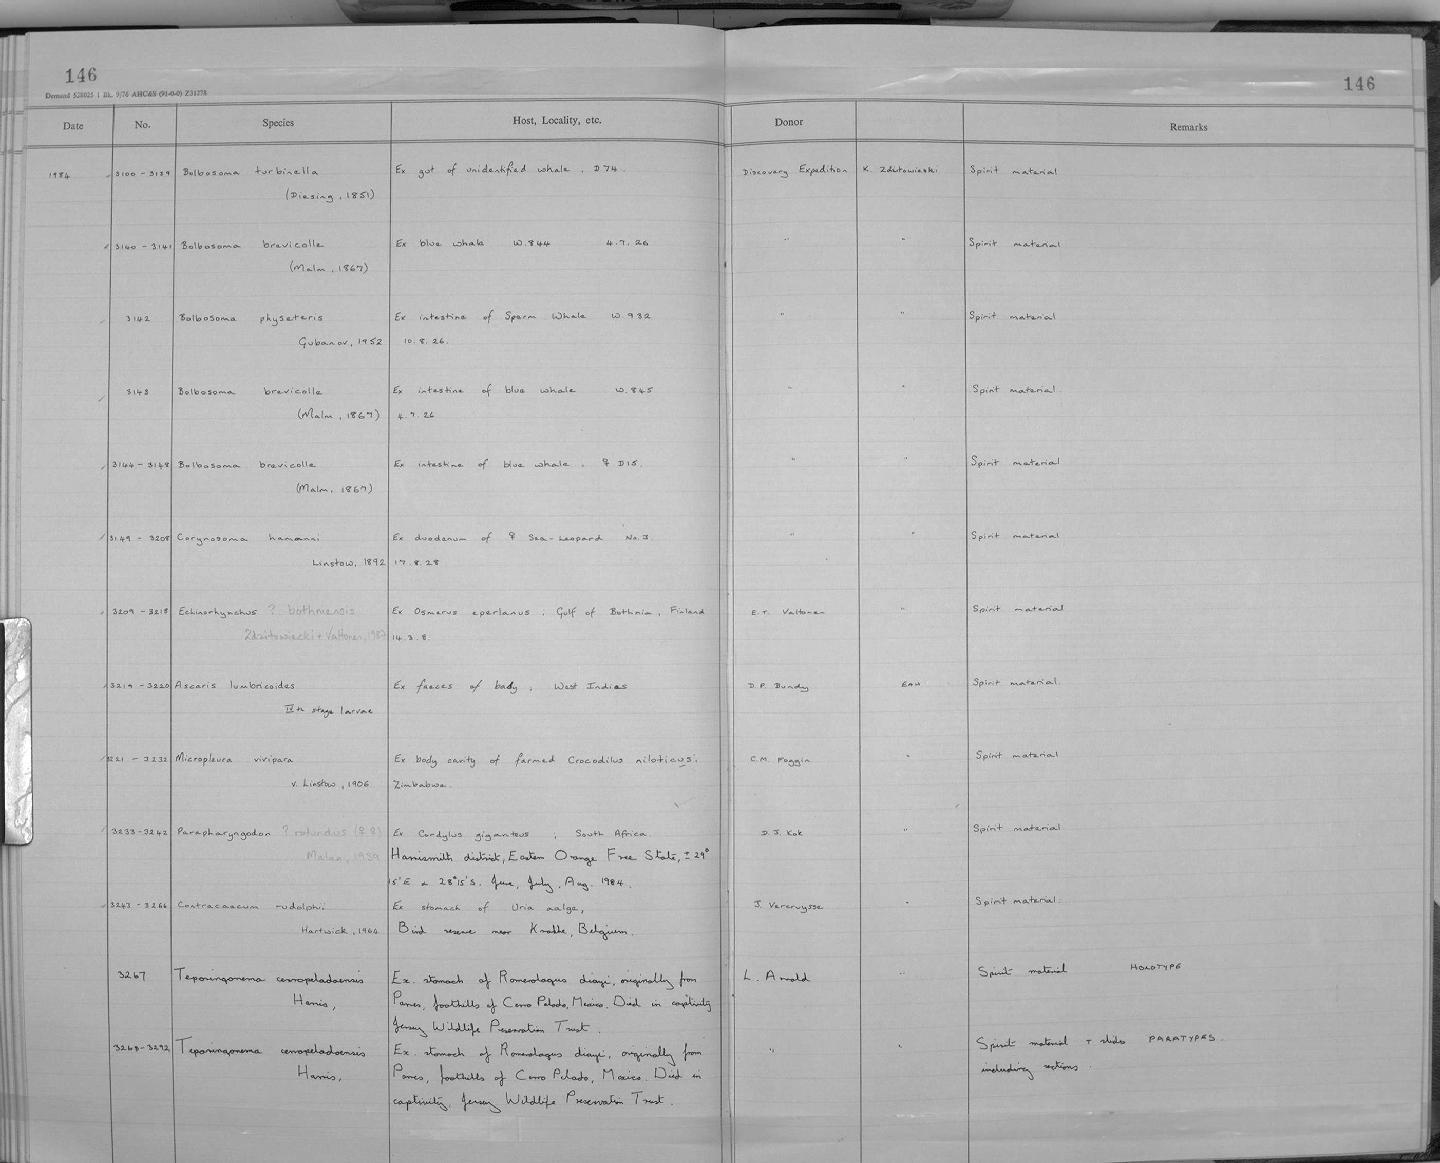 146
146
Demand 528025 1 Bk. 9/76 AHC&S (91-0-0) Z31278
Date No. Species Host, Locality, etc. Donor Remarks
1984 3100 - 3139 Bolbosoma turbinella Ex gut of unidentified whale. D74. Discovery Expedition K. Zdzitowieski Spirit material
(Diesing, 1851)
3140 - 3141 Bolbosoma brevicolle Ex blue whale W.844 4.7.26 " " Spirit material
(Malm, 1867)
3142 Bolbosoma physeteris Ex intestine of Sperm Whale W.932 " " Spirit material
Gubanov, 1952 10.8.26.
3143 Bolbosoma brevicolle Ex intestine of blue whale W.845 " " Spirit material
(Malm, 1867) 4.7.26
3144 - 3148 Bolbosoma brevicolle Ex intestine of blue whale. ♀ D15. " " Spirit material
(Malm, 1867)
3149 - 3208 Corynosoma hamanni Ex duodenum of ♀ Sea-Leopard No.3. " " Spirit material
Linstow, 1892 17.8.28
3209 - 3218 Echinorhynchus ? bothniensis Ex Osmerus eperlanus; Gulf of Bothnia, Finland E.T. Valtonen " Spirit material
Zdzitowiecki + Valtonen, 1987 14.3.8.
3219 - 3220 Ascaris lumbricoides Ex faeces of baby; West Indies D.P. Bundy EAH Spirit material.
IVth stage larvae
3221 - 3232 Micropleura vivipara Ex body cavity of farmed Crocodilus niloticus; C.M. Foggin " Spirit material
v. Linstow, 1906 Zimbabwe.
3233-3242 Parapharyngodon ? rotundus (♀♀) Ex Cordylus giganteus; South Africa. D.J. Kok " Spirit material
Malan, 1939 Harrismith district, Eastern Orange Free State, ± 29°
15'E & 28°15'S. June, July, Aug. 1984.
3243 - 3266 Contracaecum rudolphi Ex stomach of Uria aalge, J. Vercruysse " Spirit material.
Hartwick, 1964 Bird reserve near Knokke, Belgium.
3267 Teporingonema cerropeladoensis Ex. stomach of Romerolagus diazi, originally from L. Arnold " Spirit material HOLOTYPE
Harris, Parres, foothills of Cerro Pelado, Mexico. Died in captivity
Jersey Wildlife Preservation Trust.
3268-3292 Teporingonema cerropeladoensis Ex. stomach of Romerolagus diazi, originally from " " Spirit material + slides PARATYPES.
Harris, Parres, foothills of Cerro Pelado, Mexico. Died in including sections.
captivity, Jersey Wildlife Preservation Trust.